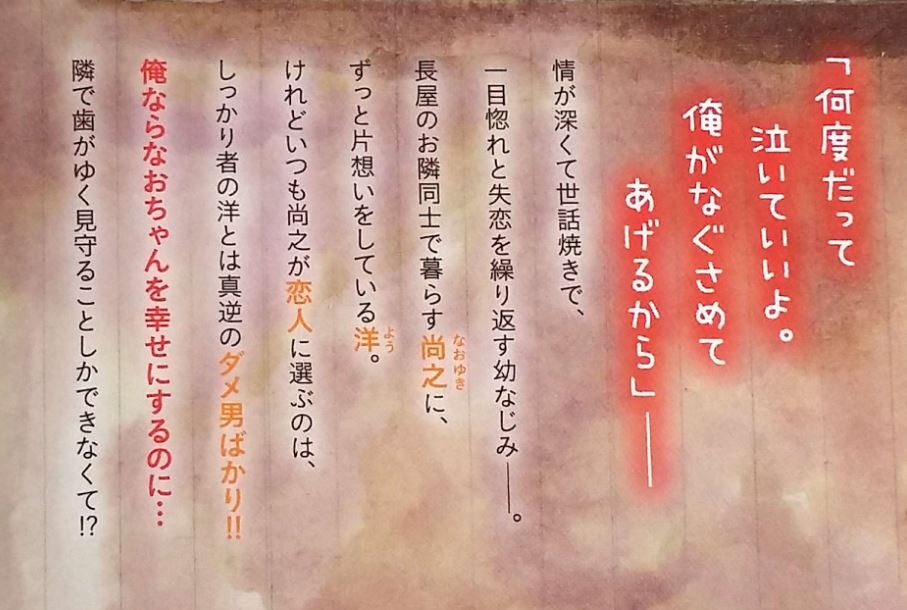 「何度だって
泣いていいよ。
俺がなぐさめて
あげるから」――
情が深くて世話焼きで、
一目惚れと失恋を繰り返す幼なじみ――。
長屋のお隣同士で暮らす尚之に、
なおゆき
ずっと片想いをしている洋。
よう
けれどいつも尚之が恋人に選ぶのは、
しっかり者の洋とは真逆のダメ男ばかり!!
俺ならなおちゃんを幸せにするのに…
隣で歯がゆく見守ることしかできなくて!?